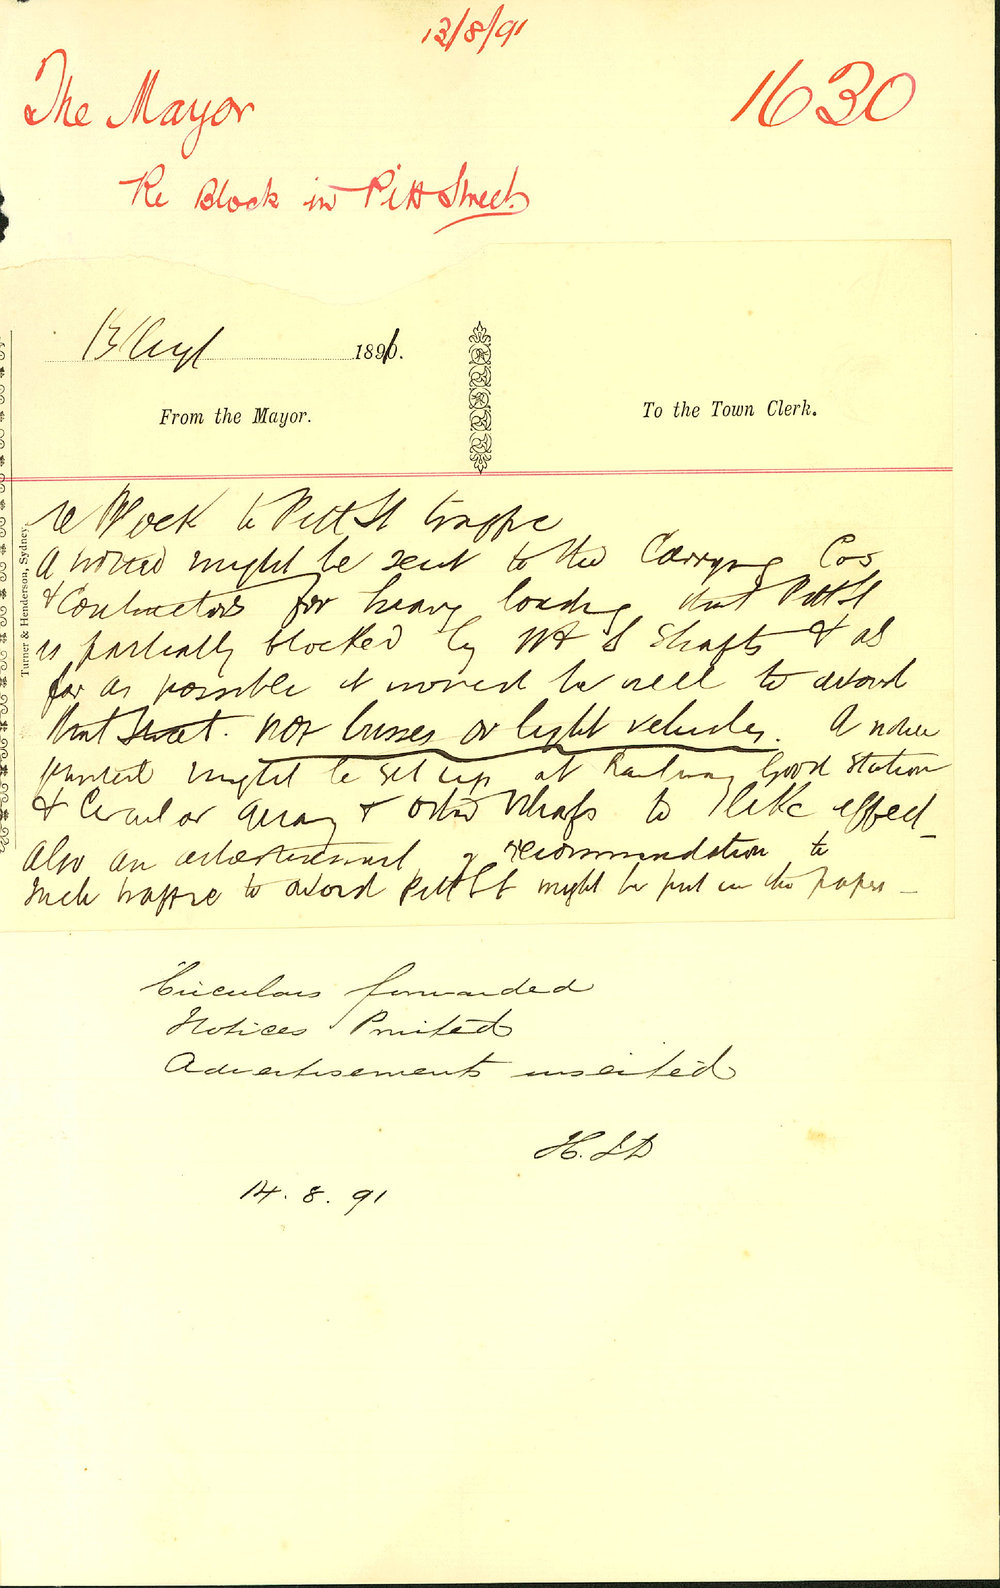 13/8/91
The Mayor
1630
Re Block in Pitt Street
13 Augt 1891.
From the Mayor.
To the Town Clerk.
Turner & Henderson, Sydney.
re Block to Pitt St traffic
A notice might be sent to the Carrying Cos
& Contractors for heavy loading that Pitt St
is partially blocked by Shafts & as
far as possible it would be well to avoid
that Street. not busses or light vehicles. A notice
printed might be set up at Railway Good Station
& Circular Quay & other Wharfs to like effect
also an advertisement & recommendation to
such traffic to avoid Pitt St might be put in the papers –
Circulars forwarded
Notices Printed
Advertisements inserted
H.
14. 8. 91